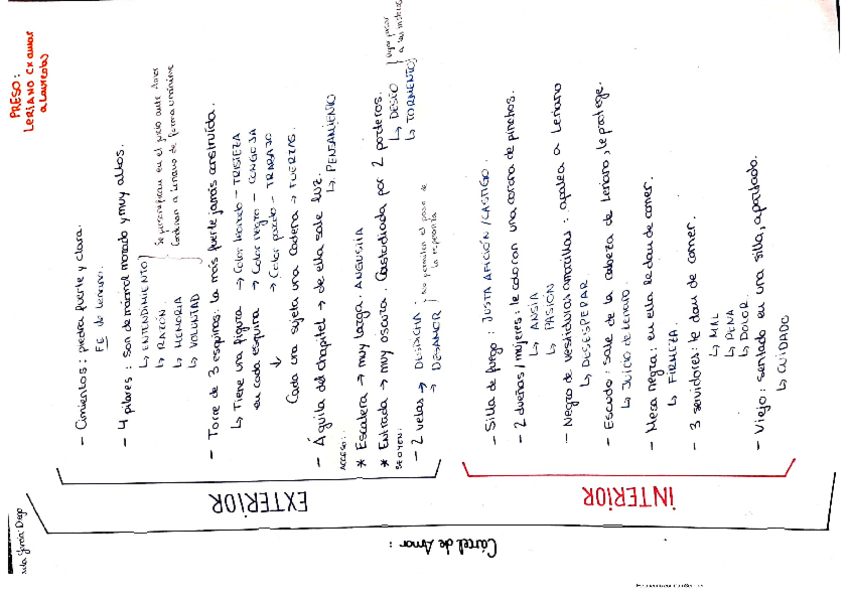 Cárcel de Amor:
PRESO:
LERIANO EX amar
a Laureola
EXTERIOR
- Cimientos: piedra fuerte y clara.
FE de Leriano.
- 4 pilares: son de mármol morado y muy altos.
↳ ENTENDIMIENTO
↳ RAZÓN
↳ MEMORIA
↳ VOLUNTAD
Se personifican en el juicio ante Amor
Condenan a Leriano de forma unánime
- Torre de 3 esquinas: la más fuerte jamás construida.
↳ Tiene una figura → Color leonado - TRISTEZA
en cada esquina → Color negro - CONGOJA
→ Color pardo - TRABAJO
↓
Cada una sujeta una cadena → FUERZAS.
- Águila del chapitel → de ella sale luz.
↳ PENSAMIENTO
ACCESO:
* Escalera → muy larga. ANGUSTIA
* Entrada → muy oscura. Custodiada por 2 porteros.
↳ DESEO
↳ TORMENTO
SE OYEN:
- 2 velas → DESDICHA
→ DESAMOR
No permiten el paso de
la esperanza
INTERIOR
- Silla de fuego: JUSTA AFICIÓN / CASTIGO.
- 2 dueñas / mujeres: le colocan una corona de pinchos.
↳ ANSIA
↳ PASIÓN
- Negro de vestiduras amarillas: apalea a Leriano
↳ DESESPERAR.
- Escudo: sale de la cabeza de Leriano, le protege.
↳ Juicio de Leriano.
- Mesa negra: en ella le dan de comer.
↳ FIRMEZA.
- 3 servidores: le dan de comer.
↳ MAL
↳ PENA
↳ DOLOR.
- Viejo: sentado en una silla, apartado.
↳ CUIDADO